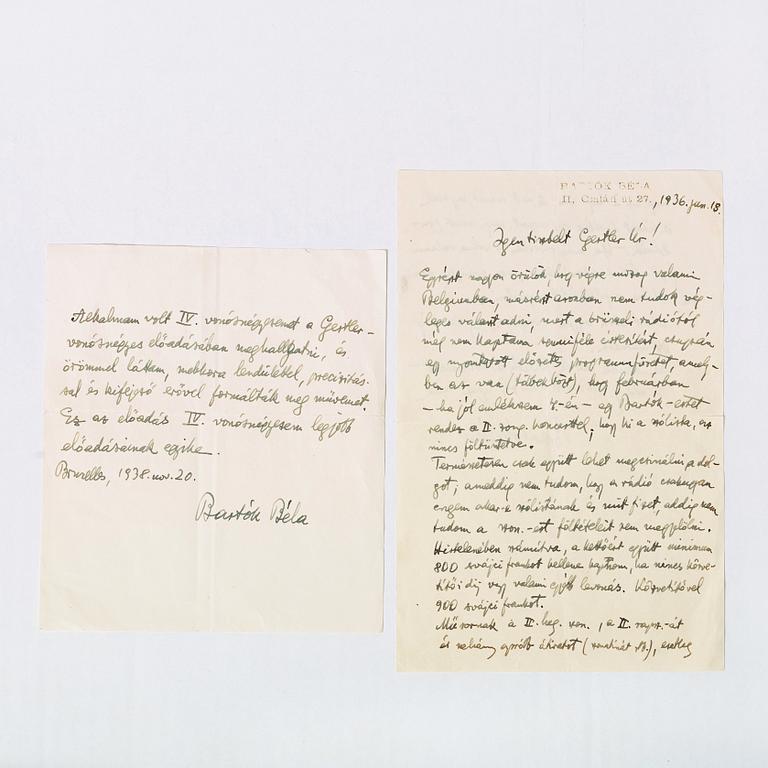 Alkalmam volt IV. vonósnégyesemet a Gertler-
vonósnégyes előadásában meghallgatni, és
örömmel láttam, mekkora lendülettel, precizitás-
sal és kifejező erővel formálták meg művemet.
Ez az előadás IV. vonósnégyesem legjobb
előadásainak egyike.
Bruxelles, 1938. nov. 20.
Bartók Béla
BARTÓK BÉLA
II, Csalán út 27., 1936. jun. 18.
Igen tisztelt Gertler Úr!
Egyrészt nagyon örülök, hogy végre mozog valami
Belgiumban, másrészt azonban nem tudok vég-
leges választ adni, mert a brüsszeli rádiótól
még nem kaptam semmiféle értesítést, csupán
egy nyomtatott előzetes programmfüzetet, amely-
ben az van (többek közt), hogy februárban
– ha jól emlékszem 4.-én – egy Bartók-estet
rendez a II. zong. koncerttel; hogy ki a szólista, az
nincs föltüntetve.
Természetesen csak együtt lehet megcsinálni a dol-
got; ameddig nem tudom, hogy a rádió csakugyan
engem akar-e szólistának és mit fizet, addig nem
tudom a szon.-est föltételeit sem megjelölni.
Hirtelenében számítva, a kettőért együtt minimum
800 svájci frankot kellene kapnom, ha nincs közve-
títői díj vagy valami egyéb levonás. Közvetítővel
900 svájci frankot.
Műsornak a II. heg. szon., a II. raps.-át
és néhány apróbb átiratot (, esetleg